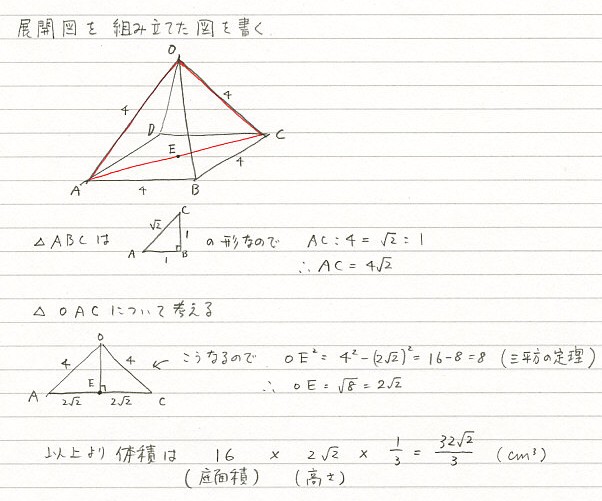 展開図を組み立てた図を書く
O
4
4
D
C
E
A
4
B
4
△ABCは
C
√2
1
A
1
B
の形なので AC:4=√2:1
∴AC=4√2
△OACについて考える
O
4
4
E
A
2√2
2√2
C
← こうなるので OE²=4²-(2√2)²=16-8=8 (三平方の定理)
∴ OE=√8=2√2
以上より 体積は 16 × 2√2 × 1/3 = 32√2/3 (cm³)
(底面積) (高さ)